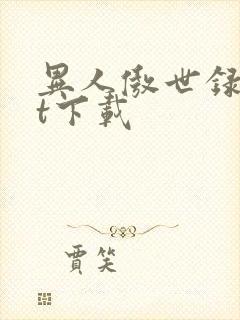 異人傲世録
t下載
賈笑